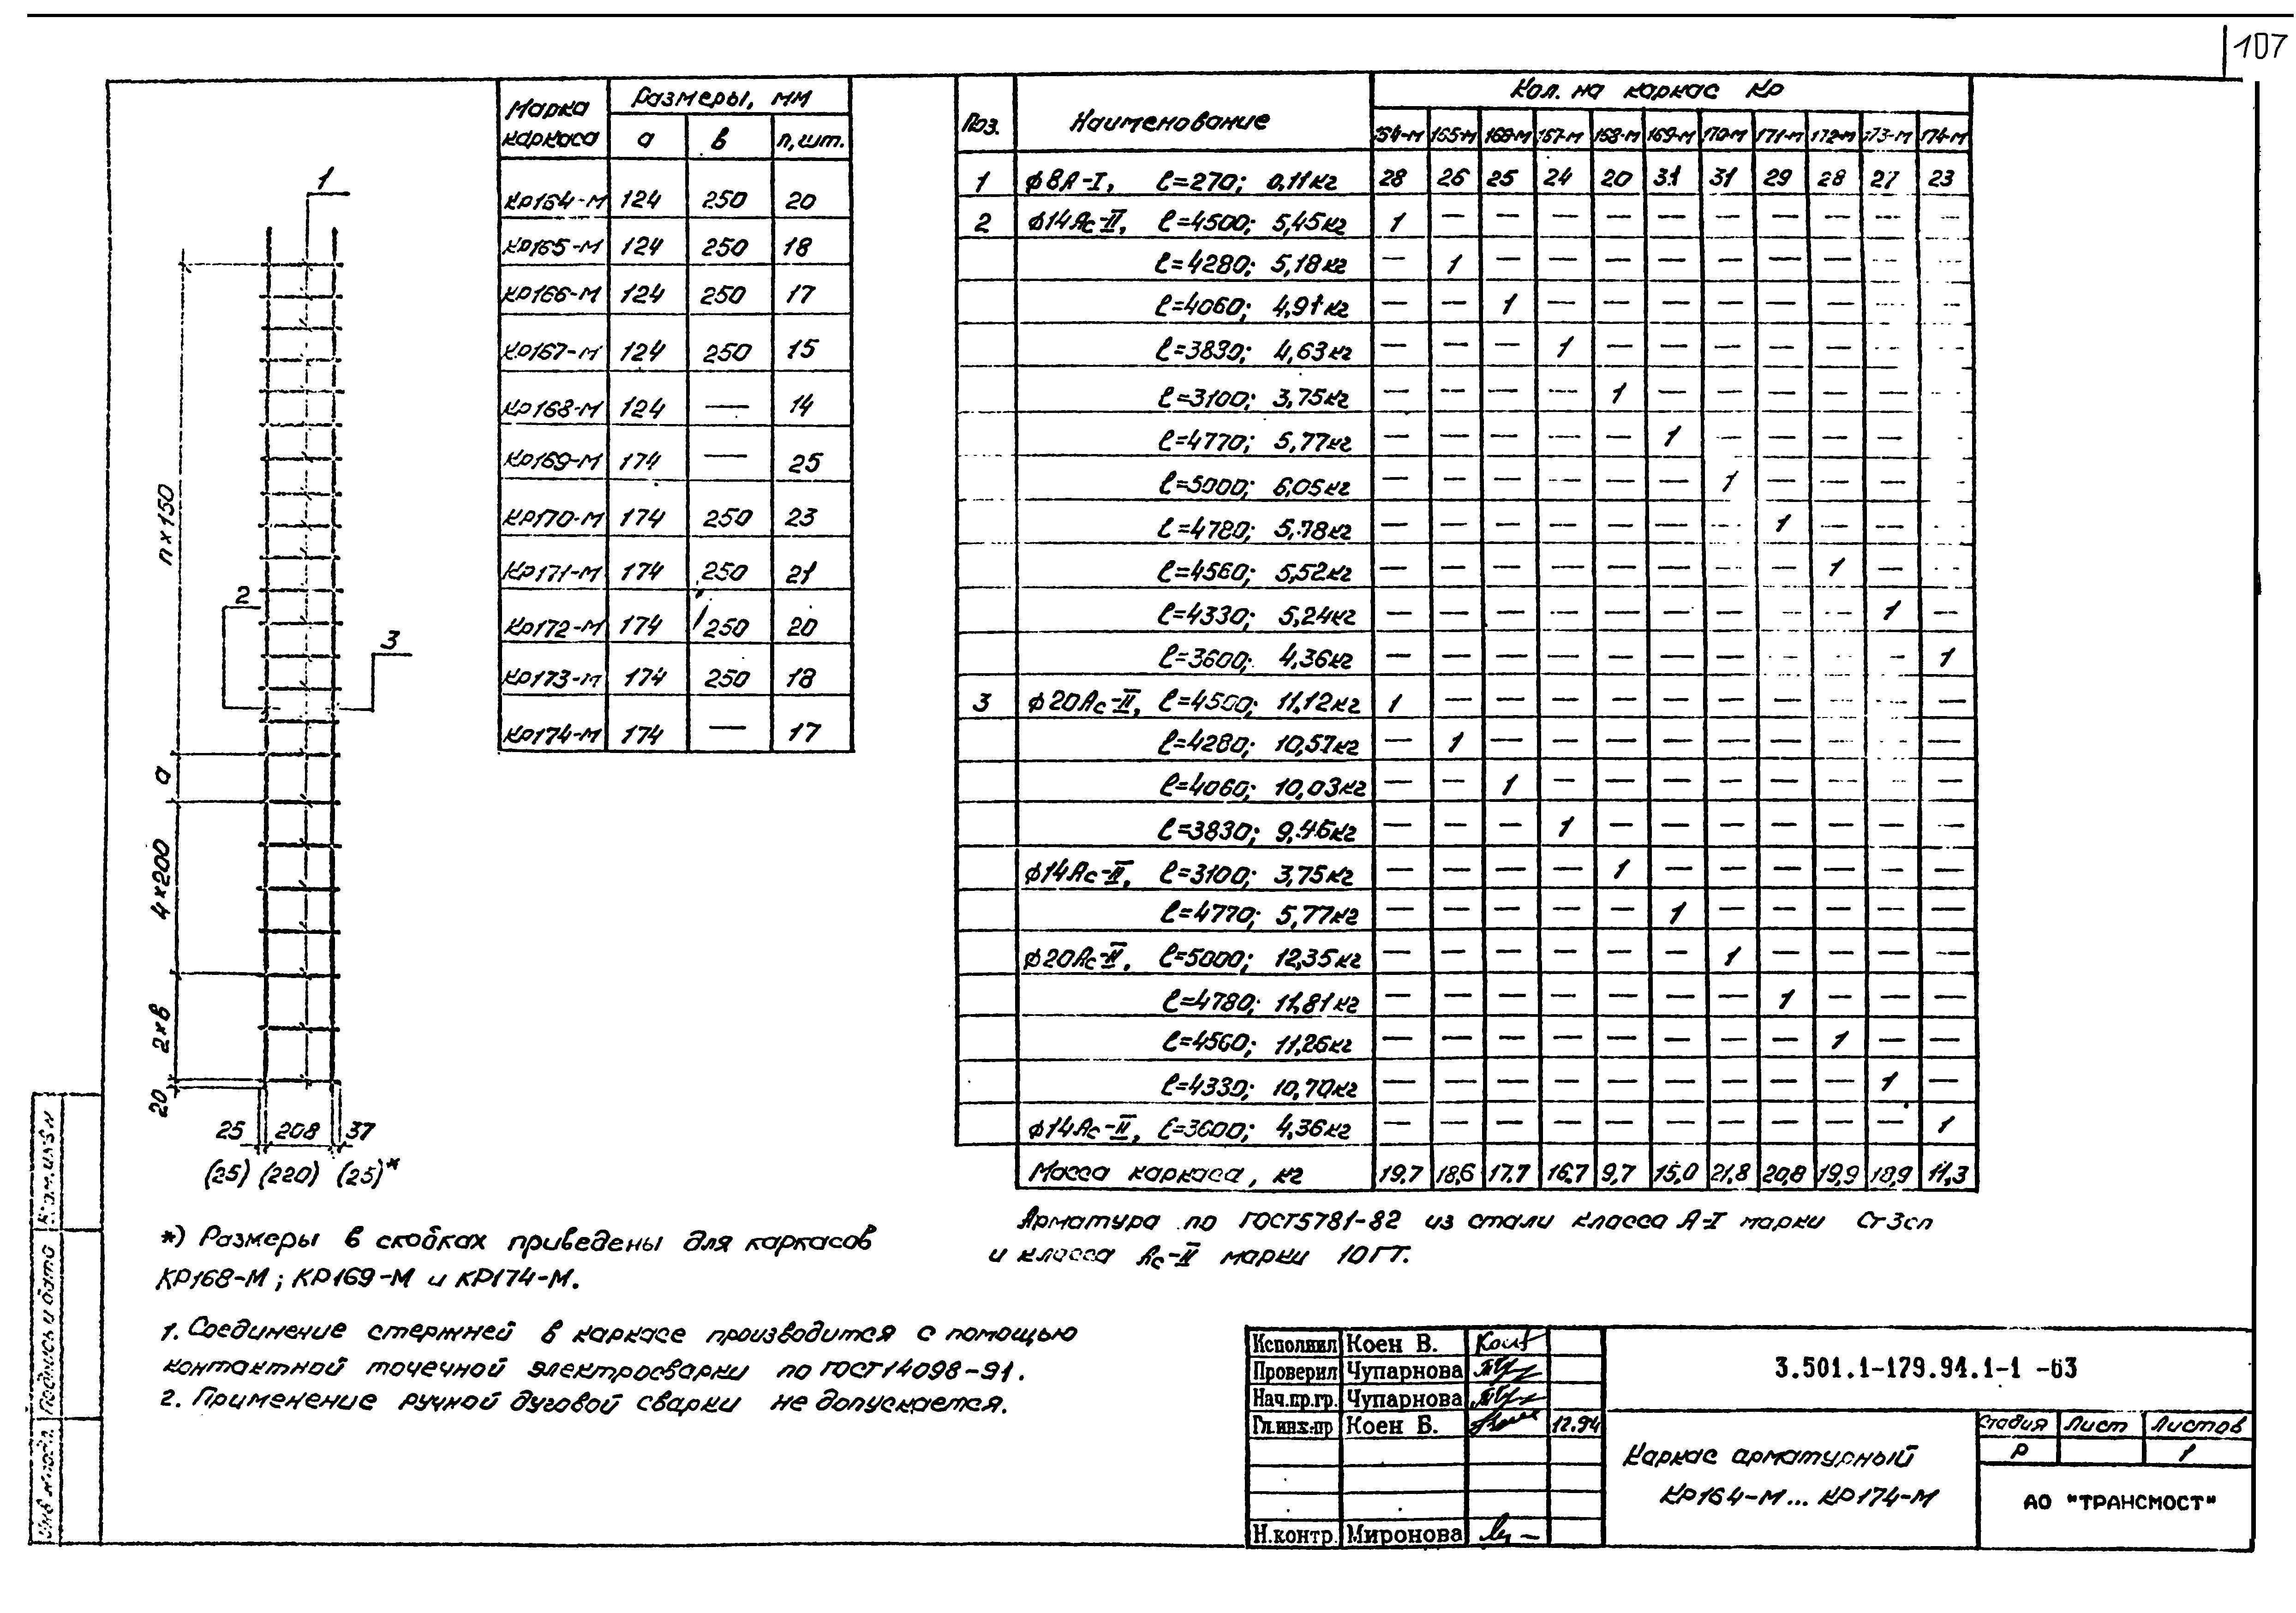 107
Марка каркаса | Размеры, мм
а | в | п, шт.
КР164-М 124 250 20
КР165-М 124 250 18
КР166-М 124 250 17
КР167-М 124 250 15
КР168-М 124 — 14
КР169-М 174 — 25
КР170-М 174 250 23
КР171-М 174 250 21
КР172-М 174 250 20
КР173-М 174 250 18
КР174-М 174 — 17
Поз. | Наименование | Кол. на каркас КР
164-М 165-М 166-М 167-М 168-М 169-М 170-М 171-М 172-М 173-М 174-М
1 ϕ8А-I, ℓ=270; 0,11кг 28 26 25 24 20 31 31 29 28 27 23
2 ϕ14Ас-II, ℓ=4500; 5,45кг 1 — — — — — — — — — —
ℓ=4280; 5,18кг — 1 — — — — — — — — —
ℓ=4060; 4,91кг — — 1 — — — — — — — —
ℓ=3830; 4,63кг — — — 1 — — — — — — —
ℓ=3100; 3,75кг — — — — 1 — — — — — —
ℓ=4770; 5,77кг — — — — — 1 — — — — —
ℓ=5000; 6,05кг — — — — — — 1 — — — —
ℓ=4780; 5,78кг — — — — — — — 1 — — —
ℓ=4560; 5,52кг — — — — — — — — 1 — —
ℓ=4330; 5,24кг — — — — — — — — — 1 —
ℓ=3600; 4,36кг — — — — — — — — — — 1
3 ϕ20Ас-II, ℓ=4500; 11,12кг 1 — — — — — — — — — —
ℓ=4280; 10,57кг — 1 — — — — — — — — —
ℓ=4060; 10,03кг — — 1 — — — — — — — —
ℓ=3830; 9,46кг — — — 1 — — — — — — —
ϕ14Ас-II, ℓ=3100; 3,75кг — — — — 1 — — — — — —
ℓ=4770; 5,77кг — — — — — 1 — — — — —
ϕ20Ас-II, ℓ=5000; 12,35кг — — — — — — 1 — — — —
ℓ=4780; 11,81кг — — — — — — — 1 — — —
ℓ=4560; 11,26кг — — — — — — — — 1 — —
ℓ=4330; 10,70кг — — — — — — — — — 1 —
ϕ14Ас-II, ℓ=3600; 4,36кг — — — — — — — — — — 1
Масса каркаса, кг 19,7 18,6 17,7 16,7 9,7 15,0 21,8 20,8 19,9 18,9 11,3
Арматура по ГОСТ5781-82 из стали класса А-I марки Ст3сп
и класса Ас-II марки 10ГТ.
1
2
3
п×150
а
4×200
2×в
20
25 208 37
(25) (220) (25)*
*) Размеры в скобках приведены для каркасов
КР168-М; КР169-М и КР174-М.
1. Соединение стержней в каркасе производится с помощью
контактной точечной электросварки по ГОСТ14098-91.
2. Применение ручной дуговой сварки не допускается.
Исполнил Коен В.
Проверил Чупарнова
Нач.пр.гр. Чупарнова
Гл.инж.пр Коен В. 12.94
Н.контр. Миронова
3.501.1-179.94.1-1 -63
Каркас арматурный
КР164-М... КР174-М
Стадия Лист Листов
Р 1
АО "ТРАНСМОСТ"
Подпись и дата
Инв. № подл.